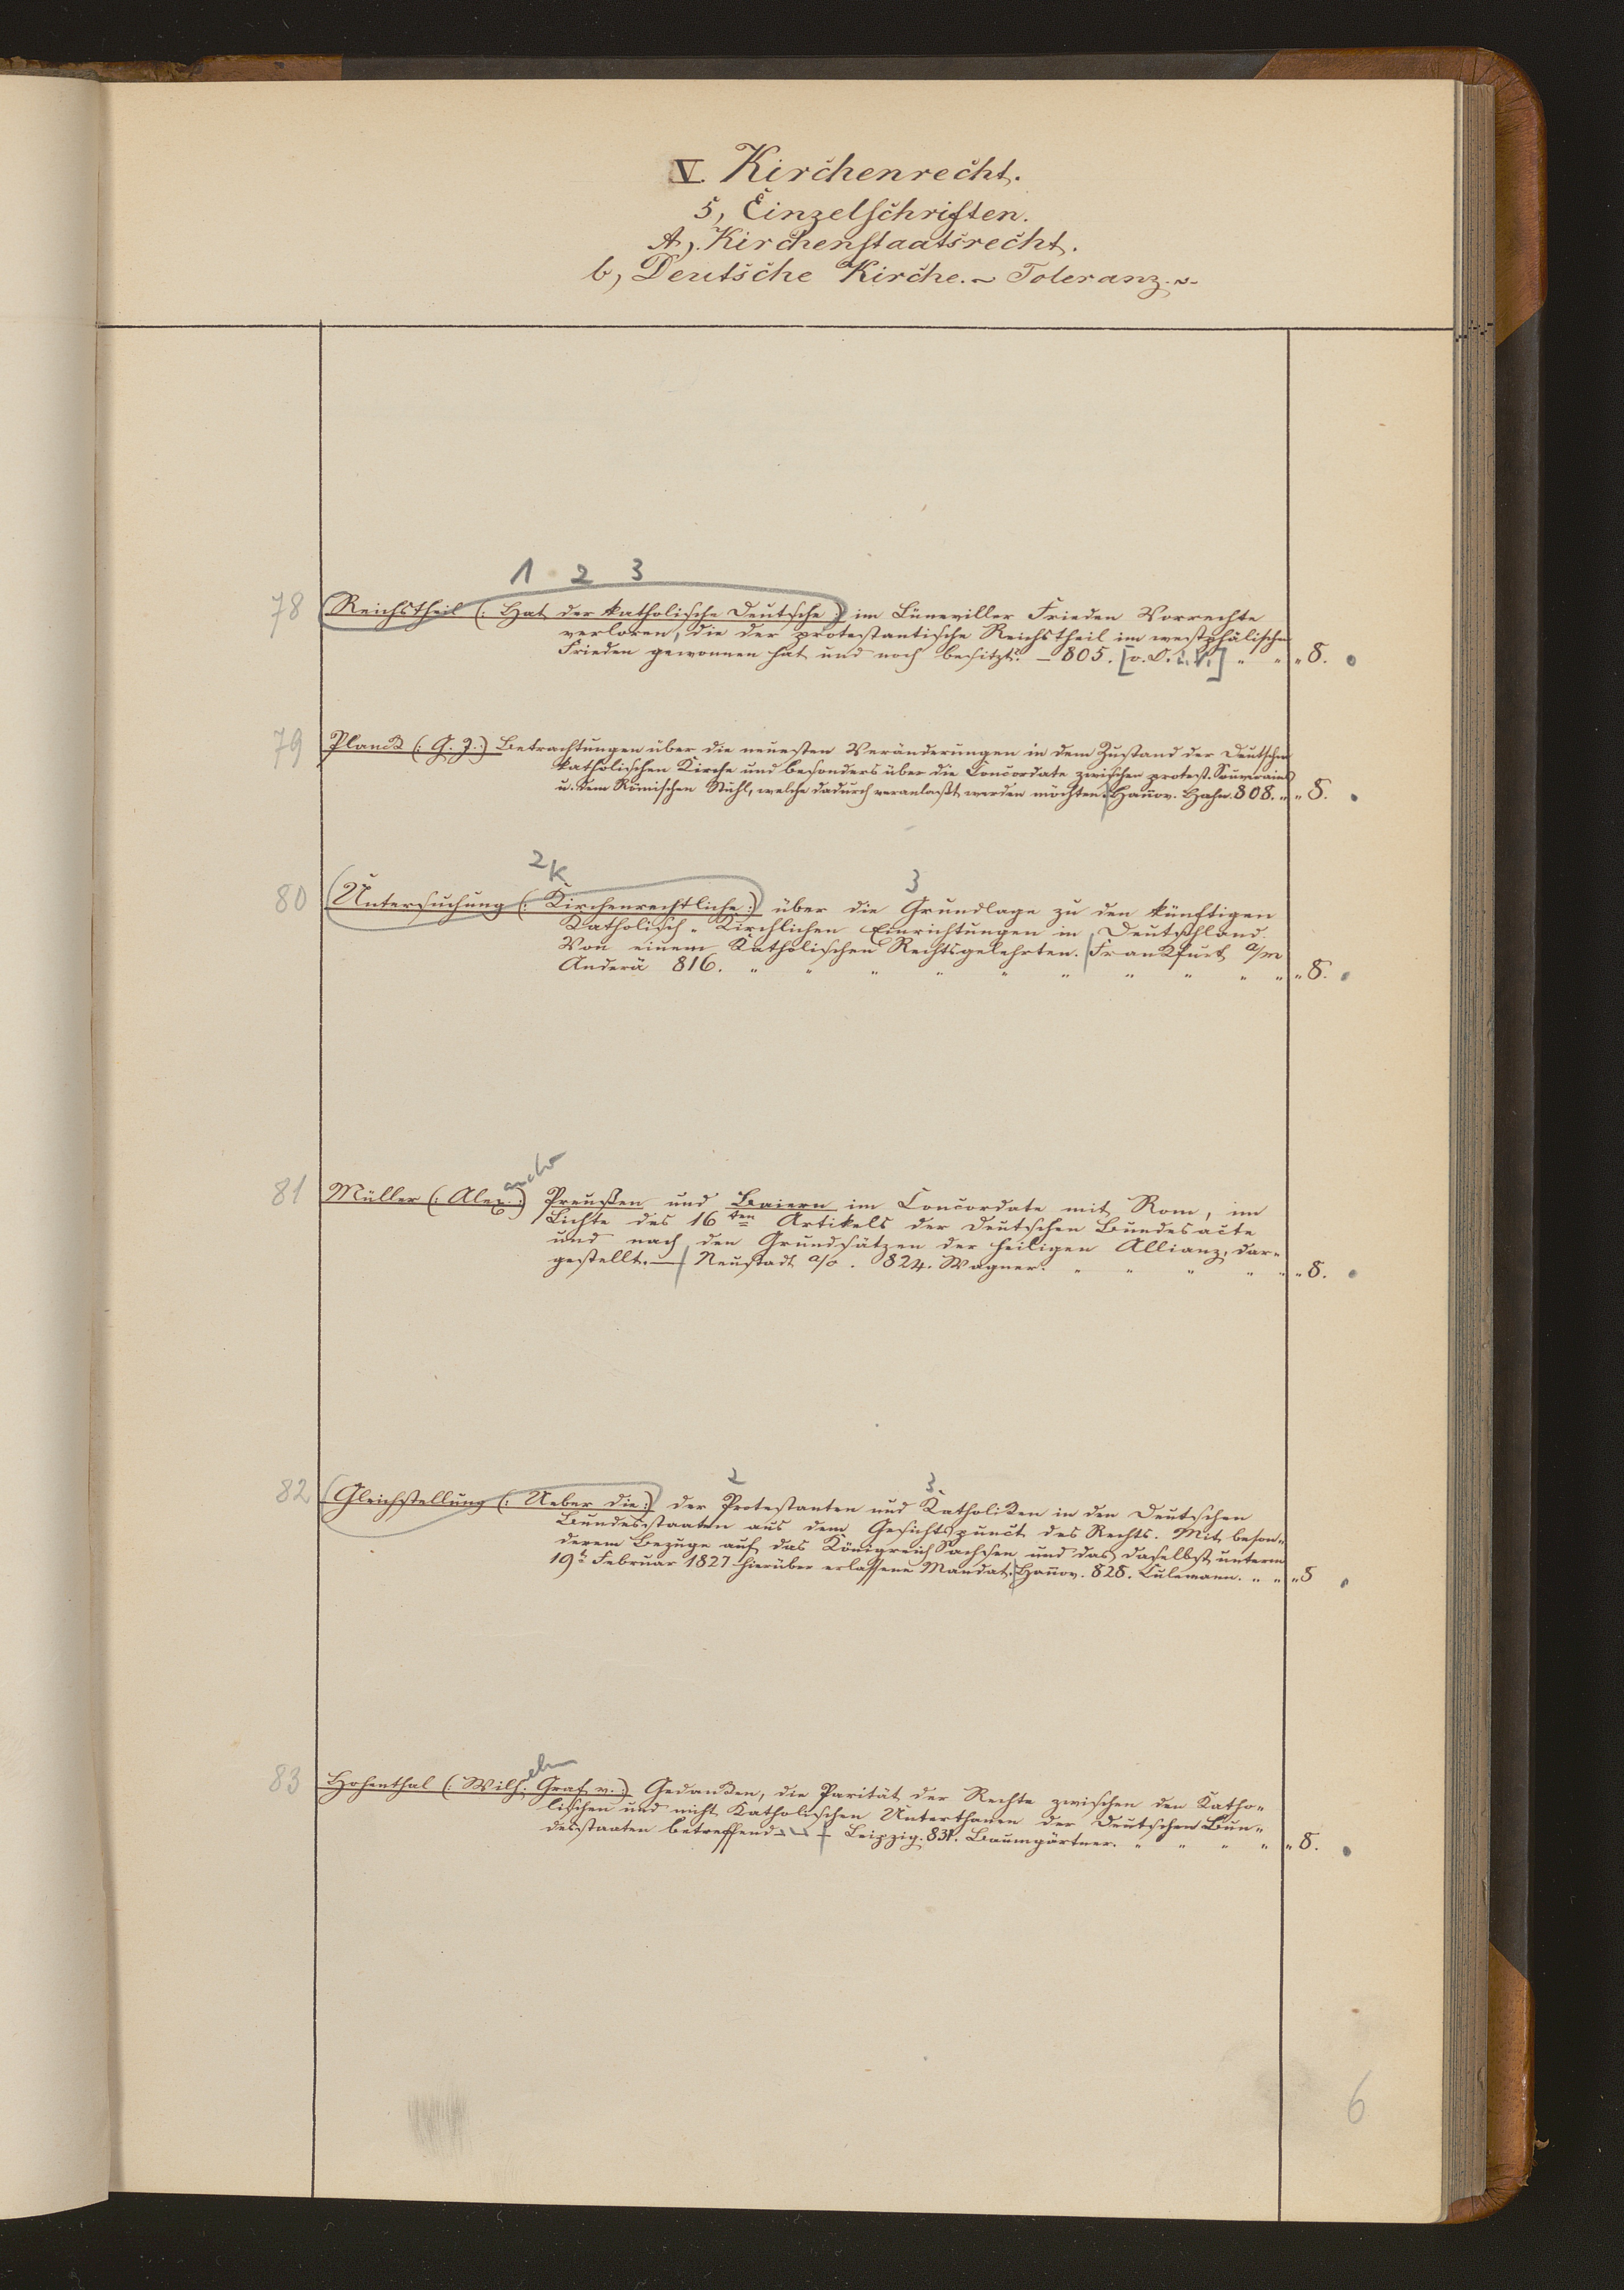 V. Kirchenrecht.
5, Einzelschriften.
A,. Kirchenstaatsrecht.
b, Deutsche Kirche. ~ Toleranz. ~
1 2 3
78 Reichstheil (: Hat der katholische Deutsche :) im Lüneviller Frieden Vorrechte
verloren, die der protestantische Reichstheil im westphälischen
Frieden gewonnen hat und noch besitzt? – 805. [o. O. u. V.] " " " 8.
79 Planck (: G. J. :) Betrachtungen über die neuesten Veränderungen in dem Zustand der Deutschen
katholischen Kirche und besonders über die Concordate zwischen protest. Souverains
u. dem Römischen Stuhl, welche dadurch veranlaßt werden möchten. Hanov. Hahn. 808. " " 8.
2 K 3
80 Untersuchung (: Kirchenrechtliche :) über die Grundlage zu den künftigen
Katholisch-Kirchlichen Einrichtungen in Deutschland.
Von einem Katholischen Rechtsgelehrten. Frankfurt a/m
Anderä 816. " " " " " " " " " " " 8.
ander
81 Müller (: Alex. :) Preußen und Baiern im Concordate mit Rom, im
Lichte des 16ten Artikels der Deutschen Bundesacte
und nach den Grundsätzen der heiligen Allianz, dar-
gestellt. — Neustadt a/o. 824. Wagner. " " " " " " 8.
2 3
82 Gleichstellung (: Ueber die :) der Protestanten und Katholiken in den Deutschen
Bundesstaaten aus dem Gesichtspunct des Rechts. Mit beson-
derem Bezuge auf das Königreich Sachsen und das daselbst unterm
19t Februar 1827 hierüber erlassene Mandat. Hanov. 828. Culemann. " " " 8
elm
83 Hohenthal (: Wilh. Graf v. :) Gedanken, die Parität der Rechte zwischen den Katho-
lischen und nicht Katholischen Unterthanen der Deutschen Bun-
desstaaten betreffend. — Leipzig. 831. Baumgärtner. " " " " " 8.
6